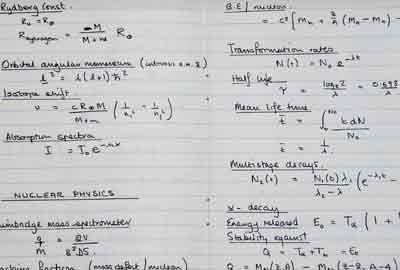 Rydberg Const.
R₀ = R∞
R hydrogen = M / M+m R∞
Orbital angular momentum
l² = l(l+1)ħ²
Isotope shift.
υ = cR∞M / M+m (1/n₁² - 1/n₂²)
Absorption spectra
I = I₀e
NUCLEAR PHYSICS
mass spectrometer
q/m =
(mass defect/nucleon)
B.E/nucleon
= c²[M
Transformation rates
N(t) = N₀e^-λt
Half life
τ = log_e2 / λ = 0.693
Mean life time
t̄ = ∫ t dN / N₀
t̄ = 1/λ
Multistage decays.
N₂(t) = N₁(0)λ₁ / λ₂-λ₁ (e^-λ₁t -
α-decay
Energy released E₀ = Tα (1 +
Stability against
Q = Tα + = E₀